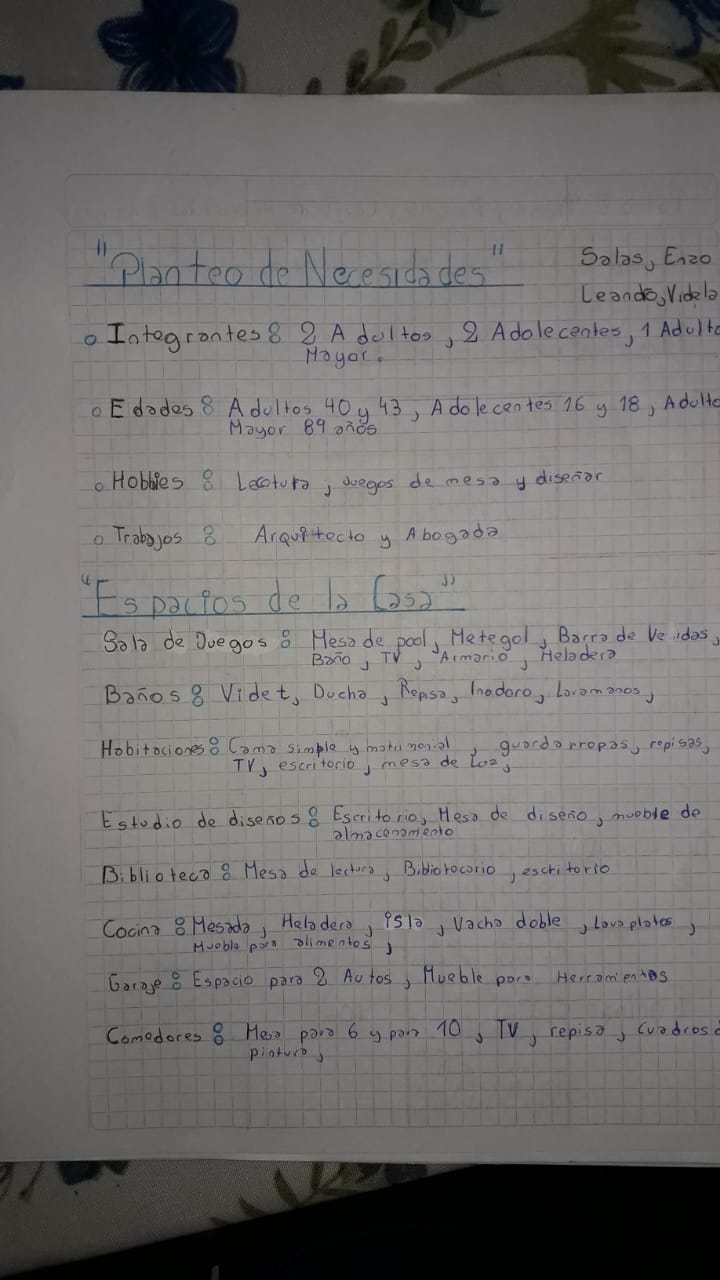 "Planteo de Necesidades"
Salas, Enzo
Leando, Videla
o Integrantes: 2 Adultos, 2 Adolecentes, 1 Adulto
Mayor.
o Edades: Adultos 40 y 43, Adolecentes 16 y 18, Adulto
Mayor 89 años
o Hobbies: Lectura, Juegos de mesa y diseñar
o Trabajos: Arquitecto y Abogada
"Espacios de la Casa"
Sala de Juegos: Mesa de pool, Metegol, Barra de
Baño, TV, Armario, Heladera
Baños: Videt, Ducha, Repisa, Inodoro, Lavamanos,
Habitaciones: Cama simple y matrimonial, guardarropas, repisas,
TV, escritorio, mesa de Luz,
Estudio de diseños: Escritorio, Mesa de diseño, mueble de
almacenamiento
Biblioteca: Mesa de lectura, Bibliotocario, escritorio
Cocina: Mesada, Heladera, isla, Vacha doble, Lavaplatos,
Mueble para alimentos,
Garaje: Espacio para 2 Autos, Mueble para Herramientas
Comedores: Mesa para 6 y para 10, TV, repisa, Cuadros
pintura,